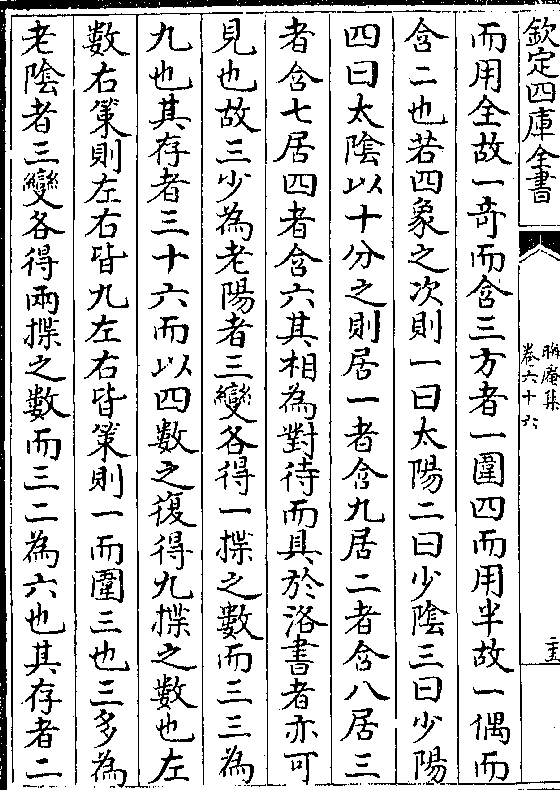 欽定四庫全書
晦庵集
卷六十六
主
而用全故一竒而含三方者一圍四而用半故一偶而
含二也若四象之次則一曰太陽二曰少陰三曰少陽
四曰太陰以十分之則居一者含九居二者含八居三
者含七居四者含六其相為對待而具於洛書者亦可
見也故三少為老陽者三變各得一揲之數而三三為
九也其存者三十六而以四數之復得九揲之數也左
數右䇿則左右皆九左右皆䇿則一而圍三也三多為
老陰者三變各得兩揲之數而三二為六也其存者二